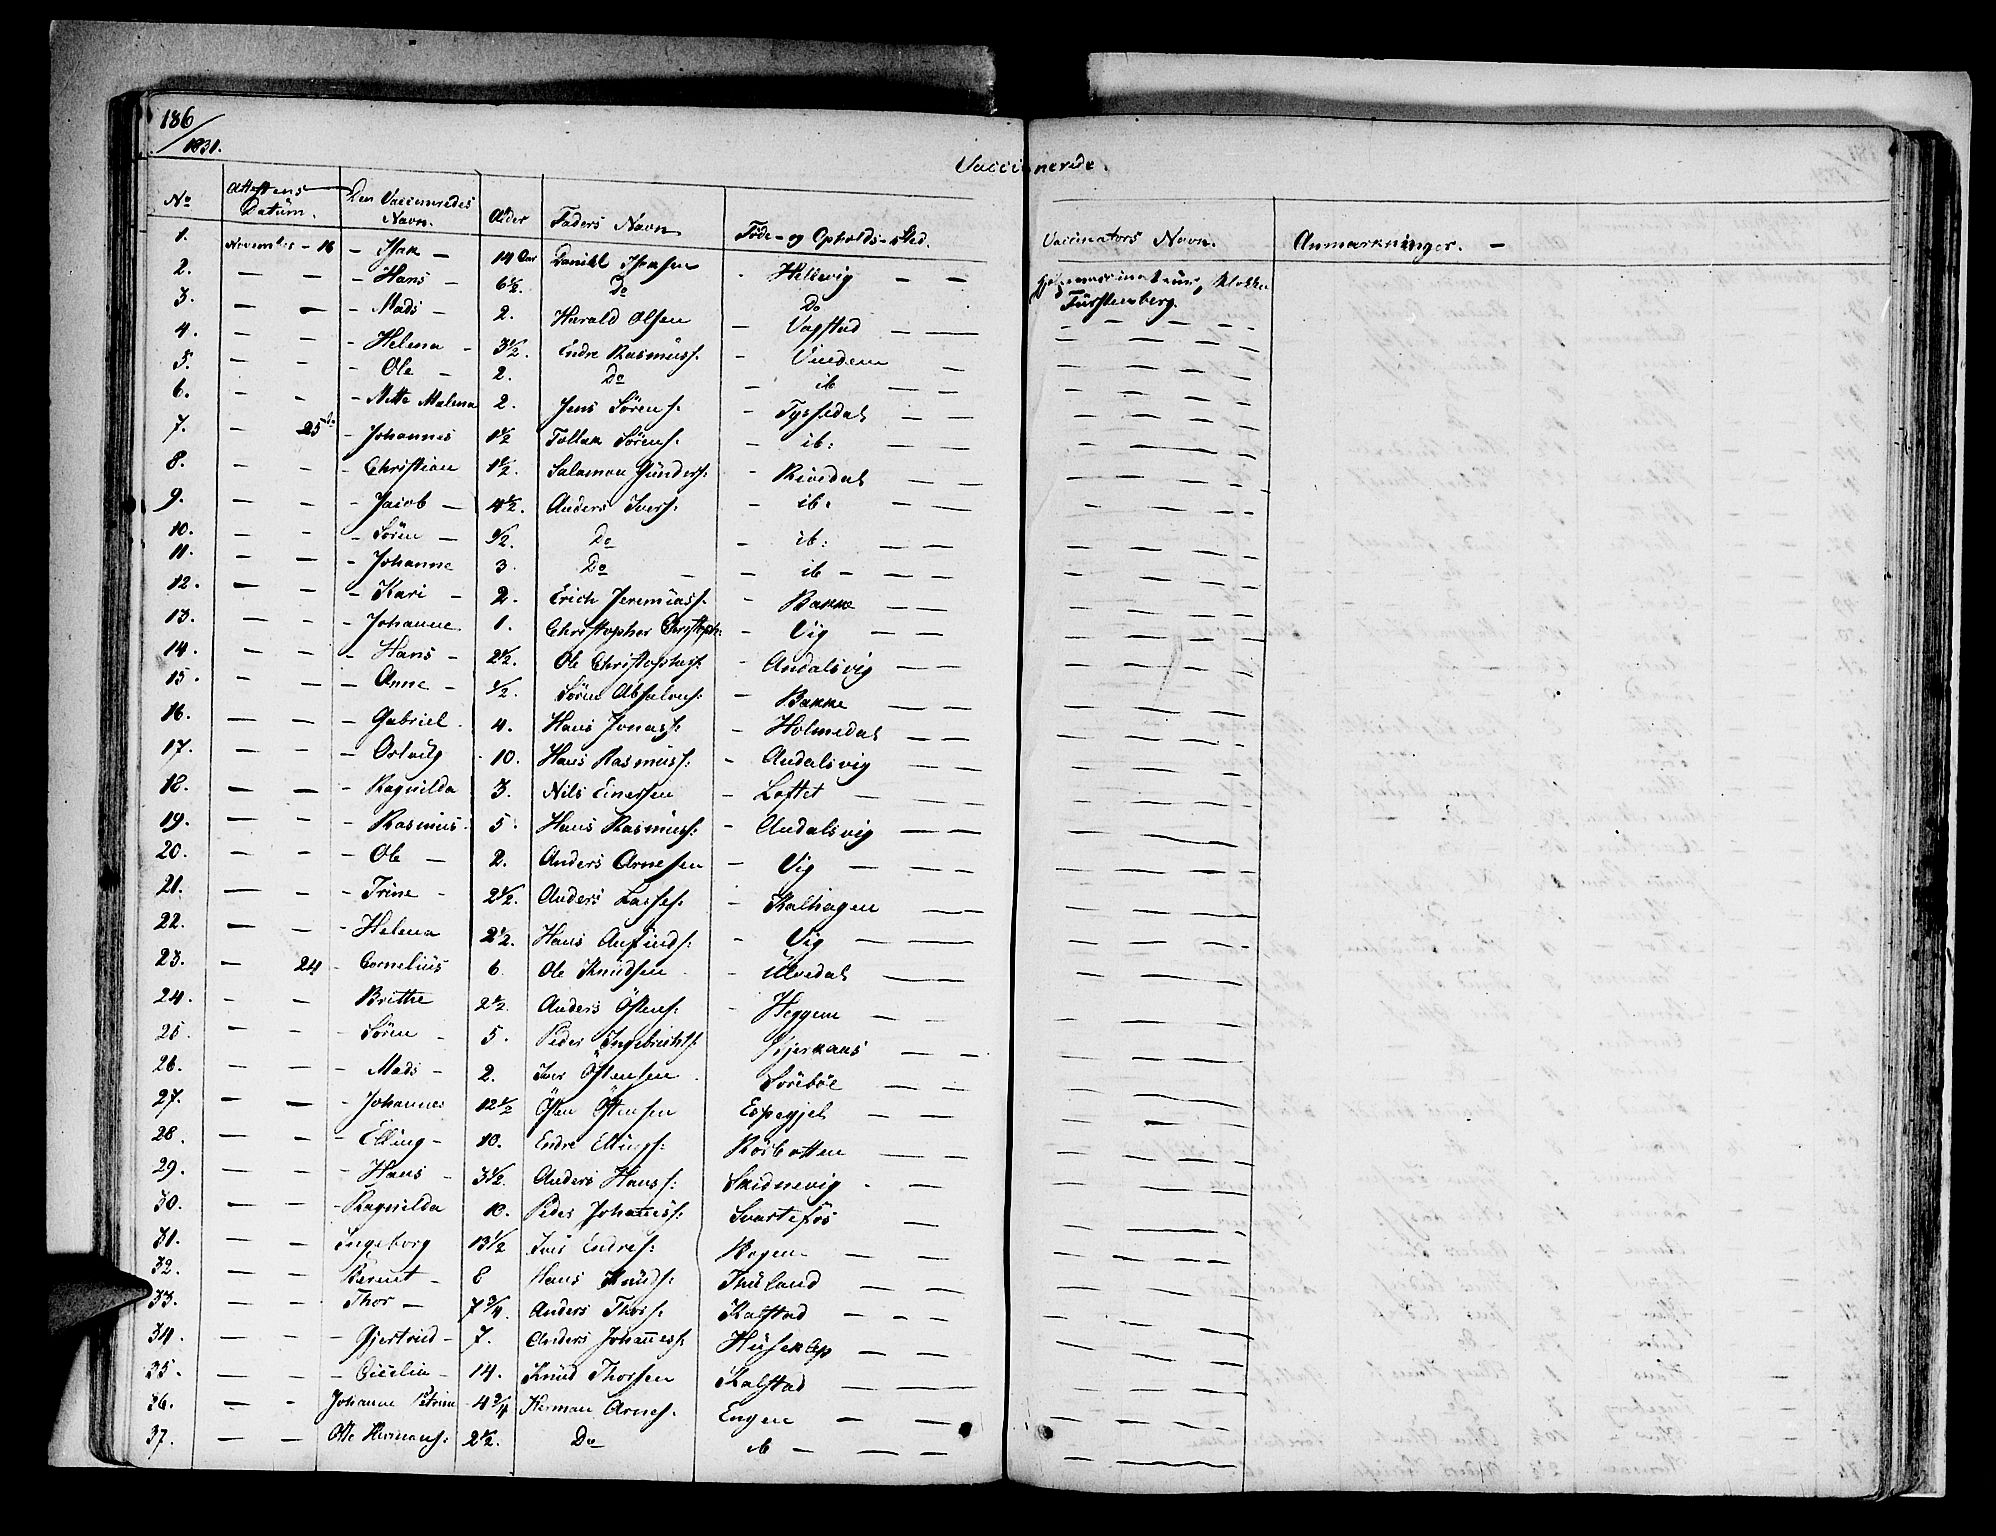 186
1831.
Vaccinerede.
No Attestens Datüm. Den Vaccineredes Navn. Alder Faders Navn Föde- og Opholds-sted. Vaccinators Navn. Anmærkninger. —
1. November - 16 - Isak - 14 Aar Daniel Isaksen - Hellevig — — Hjelpevaccinateur, Klokker
2. — — - Hans - 6½. Do Do Fürstenberg.
3. — — - Mads - 2. Harald Olsen — Vagstad — —
4. — — - Helena - 3½. Endre Rasmüss: -
5. — — - Ole - 2. Do — ib — —
6. - - - Mette Malena 2. Jens Sörens: - Tyssedal — —
7. - 25de - Johannes 1½ Tollak Sörens: - ib: — —
8. - - - Christian 1½. Salamon Günders: - Rivedal — —
9. — — - Jacob — 4½. Anders Ivers: - ib. — —
10. — — - Sören — ½. Do — ib: — —
11. — — - Johanne 3. Do — — ib — — —
12. — — - Kari - 2. Erich Jeremiass: - Bakke — —
13. — — - Johanne 1. Christopher Christoph: - Vig — —
14. — — - Hans - 2½. Ole Christophers: - Andalsvig — —
15. - — — Anne - ½. Sören Absalons: — Bakke — —
16. — — - Gabriel. 4. Hans Jonass: - Holmedal — —
17. — — - 10. Hans Rasmüss: - Andalsvig — —
18. — — - Ragnilda 3. Nils Einersen - Loftet — — —
19. — — - Rasmus. 5. Hans Rasmüss: - Andalsvig — —
20. — — - Ole — 2. Anders Arnesen — Vig — —
21. — — - Trine - 2½. Anders Lasses: - Kalhagen — —
22. — — - Helena 2½. Hans Anfinds: - Vig — —
23. - 24 - Cornelius 6. Ole Knüdsen - Ulvedal — —
24. - - Brithe 2½. Anders Östens: - Heggem — —
25. — — - Sören - 5. Peder Ingebrichts: — —
26. — — - Mads - 2. Iver Östensen. Söreböe — —
27. — — - Johannes 12½ Östen Östensen Espegjel — —
28. — — - Elling - 10. Endre Ellings: — —
29. — — - Hans - 3½. Anders Hans s: Skidnevig - — —
30. — — - Ragnilda 10. Peder Johaness: Svartefos —
31. — — Ingeborg 13½ Iver Endres: Bogen — —
32. — — Berent - 8 Hans Knüds: — —
33. — — Thor — 7¾. Anders Thors: Kalstad — — —
34. — — - Gjertrud - 7. Anders Johaness: — —
35. — — - Cicelia - 14. Knüd Thorsen Kalstad — —
36. — - Johanne Petrine 4¾ Herman Arnes: Engen — —
37. — — Ole Hermans: 2½. Do ib — — —